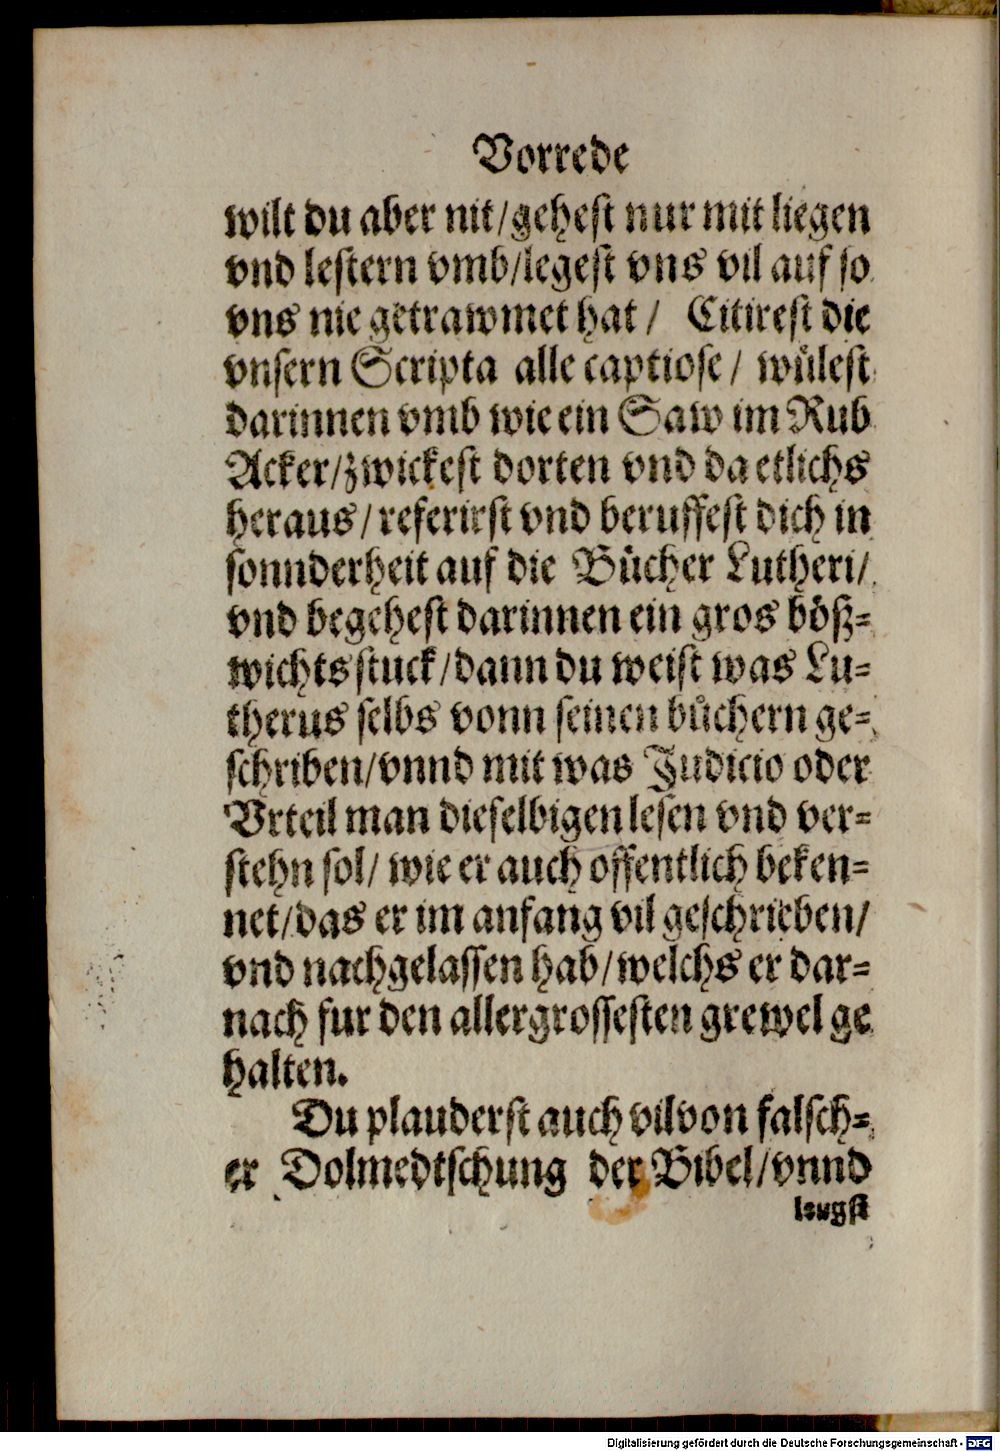 Vorrede
wilt du aber nit/gehest nur mit liegen
vnd lestern vmb/legest vns vil auf so
vns nie getrawmet hat / Citirest die
vnsern Scripta alle captiose / wuͤlest
darinnen vmb wie ein Saw im Rub
Acker/zwickest dorten vnd da etlichs
heraus/referirst vnd beruffest dich in
sonnderheit auf die Buͤcher Lutheri/
vnd begehest darinnen ein gros böß=
wichts stuck/dann du weist was Lu=
therus selbs vonn seinen buͤchern ge=
schriben/vnnd mit was Judicio oder
Vrteil man dieselbigen lesen vnd ver=
stehn sol/ wie er auch offentlich beken=
net/das er im anfang vil geschrieben/
vnd nachgelassen hab/welchs er dar=
nach fur den allergrossesten grewel ge
halten.
Du plauderst auch vil von falsch=
er Dolmedtschung der Bibel/vnnd
leugst
Digitalisierung gefördert durch die Deutsche Forschungsgemeinschaft - DFG